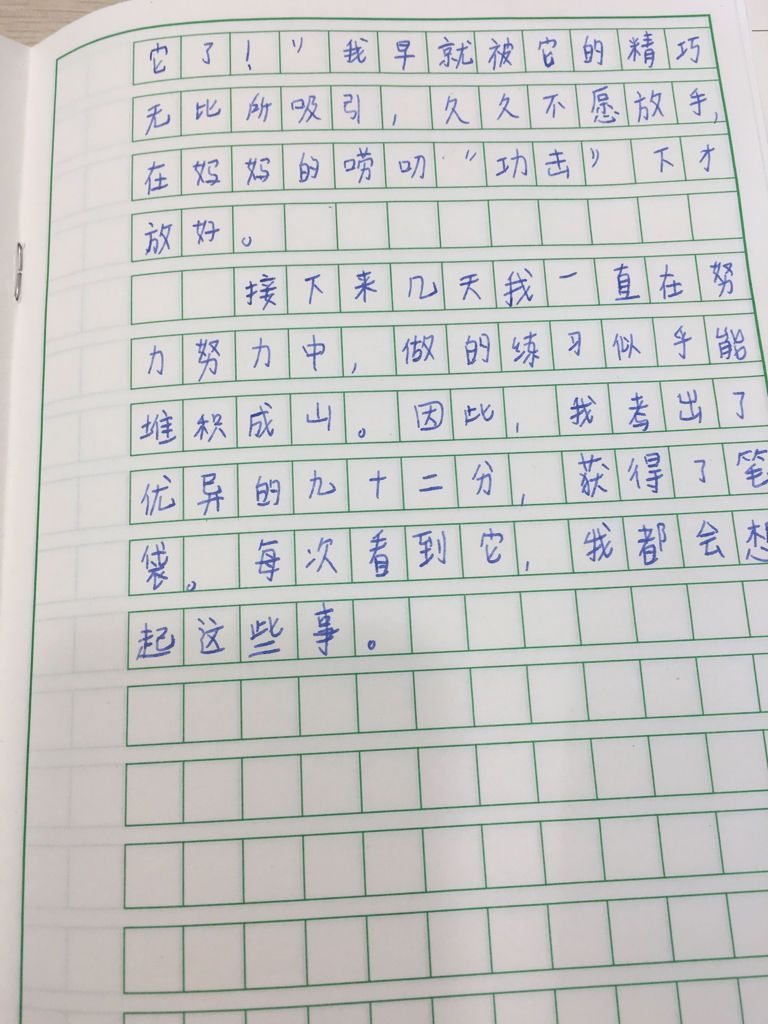 它了！”我早就被它的精巧
无比所吸引，久久不愿放手，
在妈妈的唠叨“功击”下才
放好。
接下来几天我一直在努
力努力中，做的练习似乎能
堆积成山。因此，我考出了
优异的九十二分，获得了笔
袋。每次看到它，我都会想
起这些事。